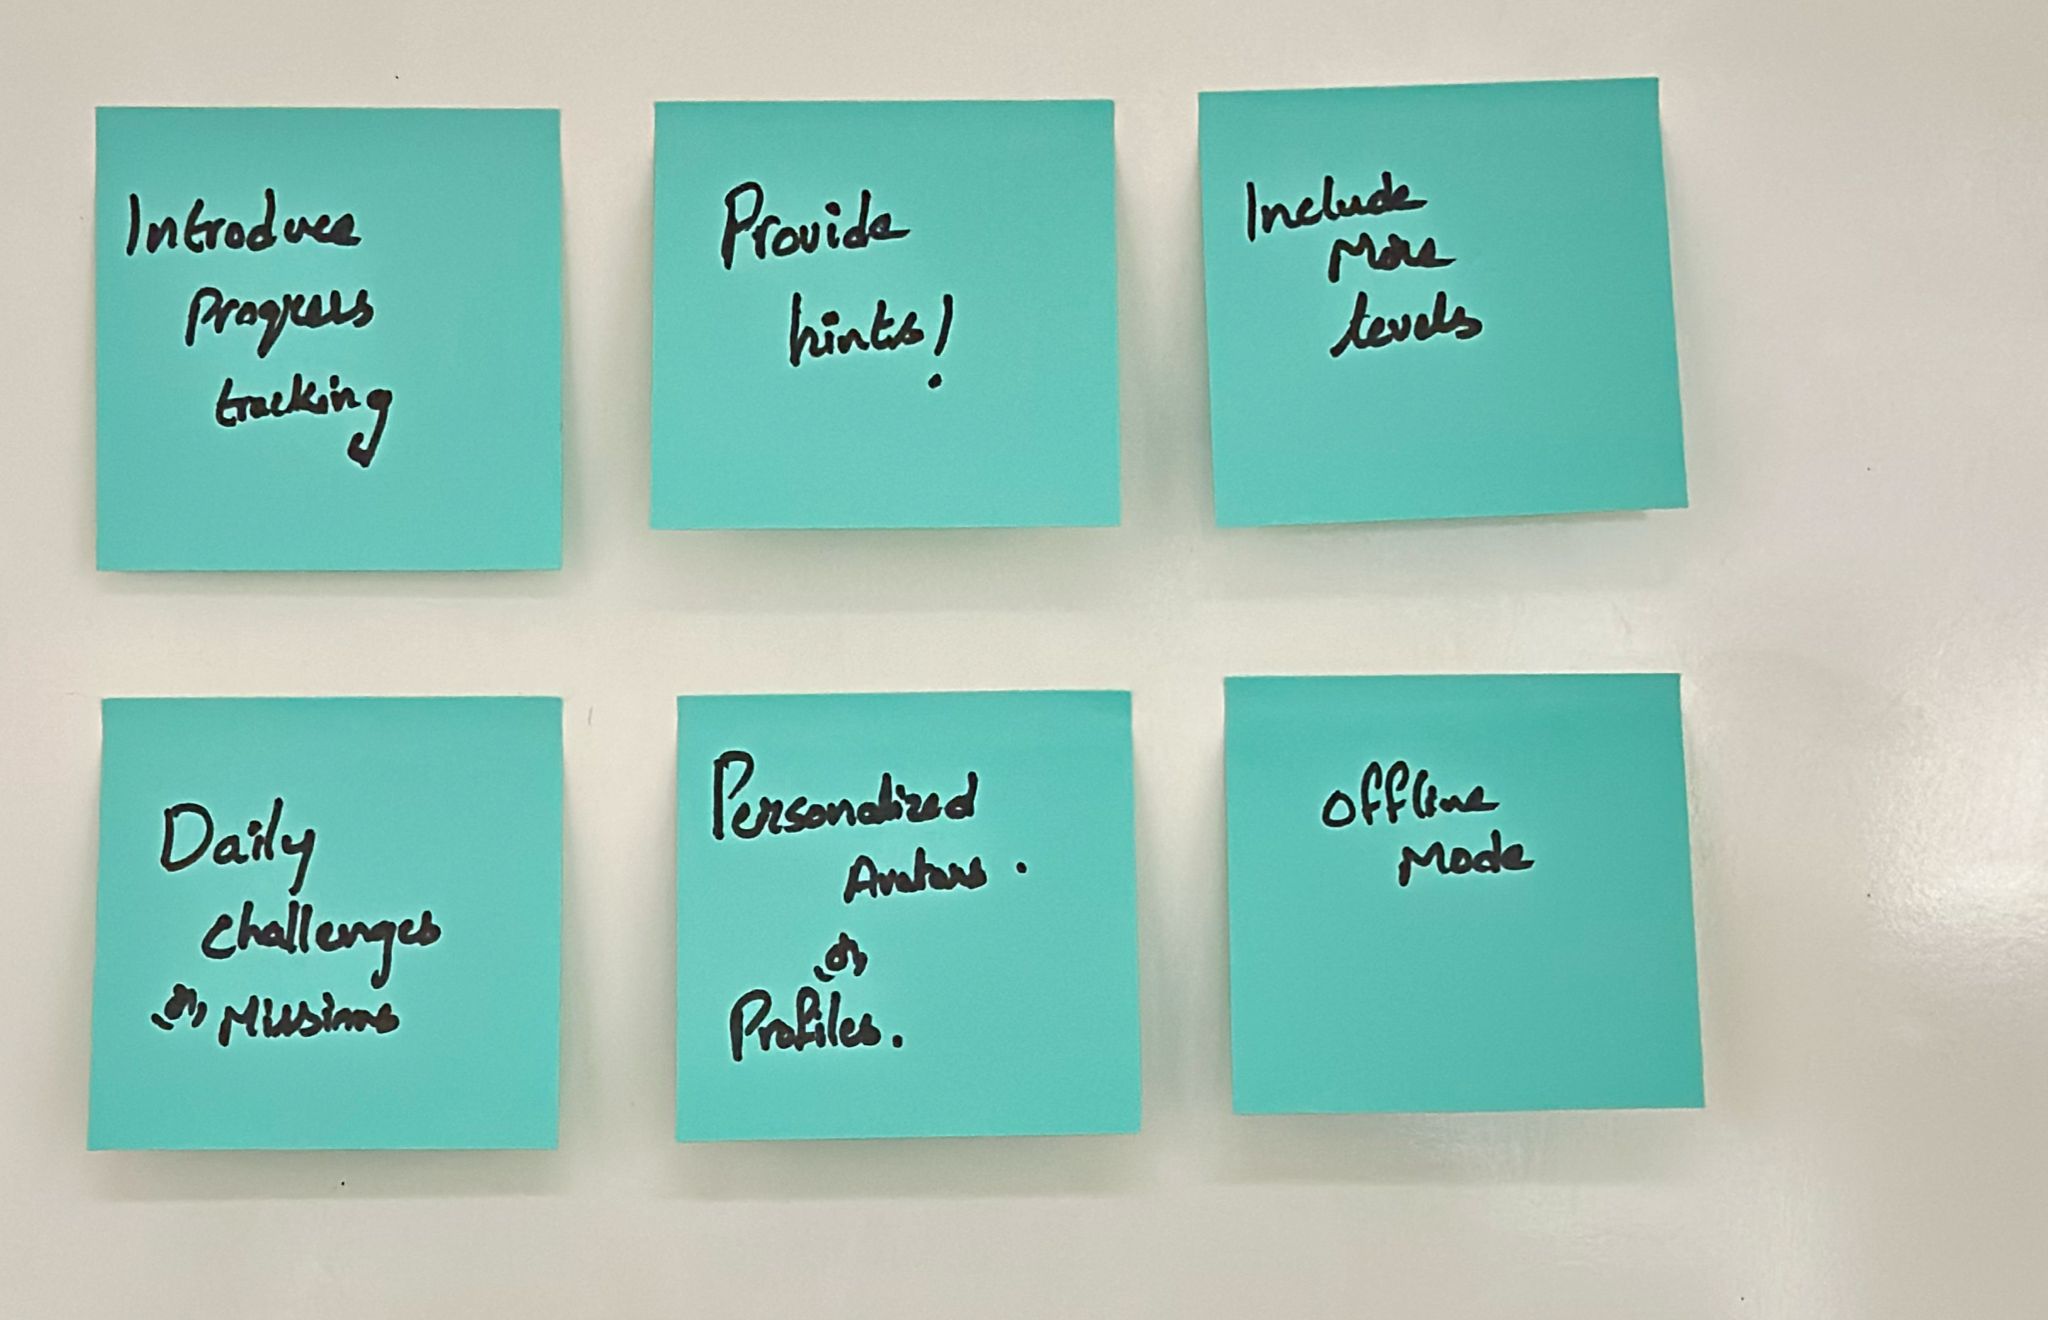 Introduce
Progress
tracking
Provide
hints!
Include
More
levels
Daily
challenges
(or) Missions
Personalized
Avatars.
(or)
Profiles.
Offline
Mode